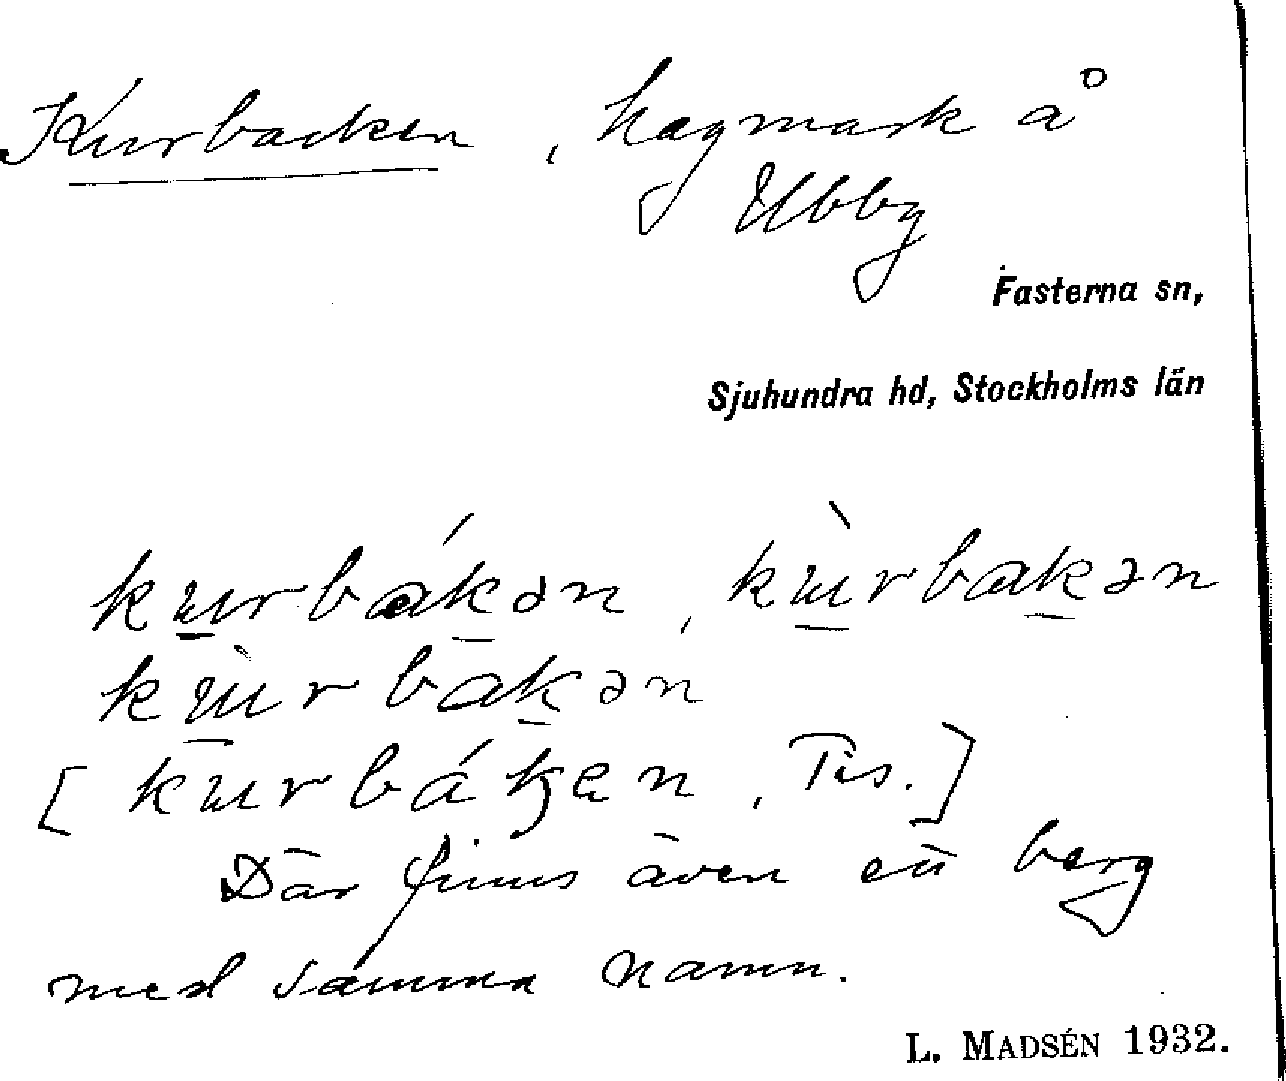 Kurbacken, hagmark å
Ubby
Fasterna sn,
Sjuhundra hd, Stockholms län
ku̲rbák̲ən, kù̲rbak̲ən
kù̲rbak̲ən
[kurbáꞣen, Tis.]
Där finns även ett berg
med samma namn.
L. MADSÉN 1932.